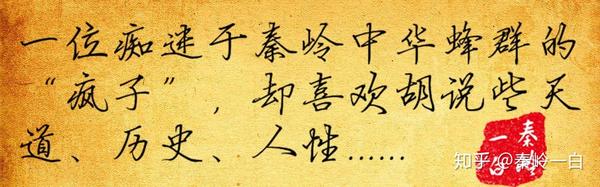 一位痴迷于秦岭中华蜂群的
“疯子”，却喜欢胡说些天
道、历史、人性……
秦岭
一白
知乎 @秦岭一白